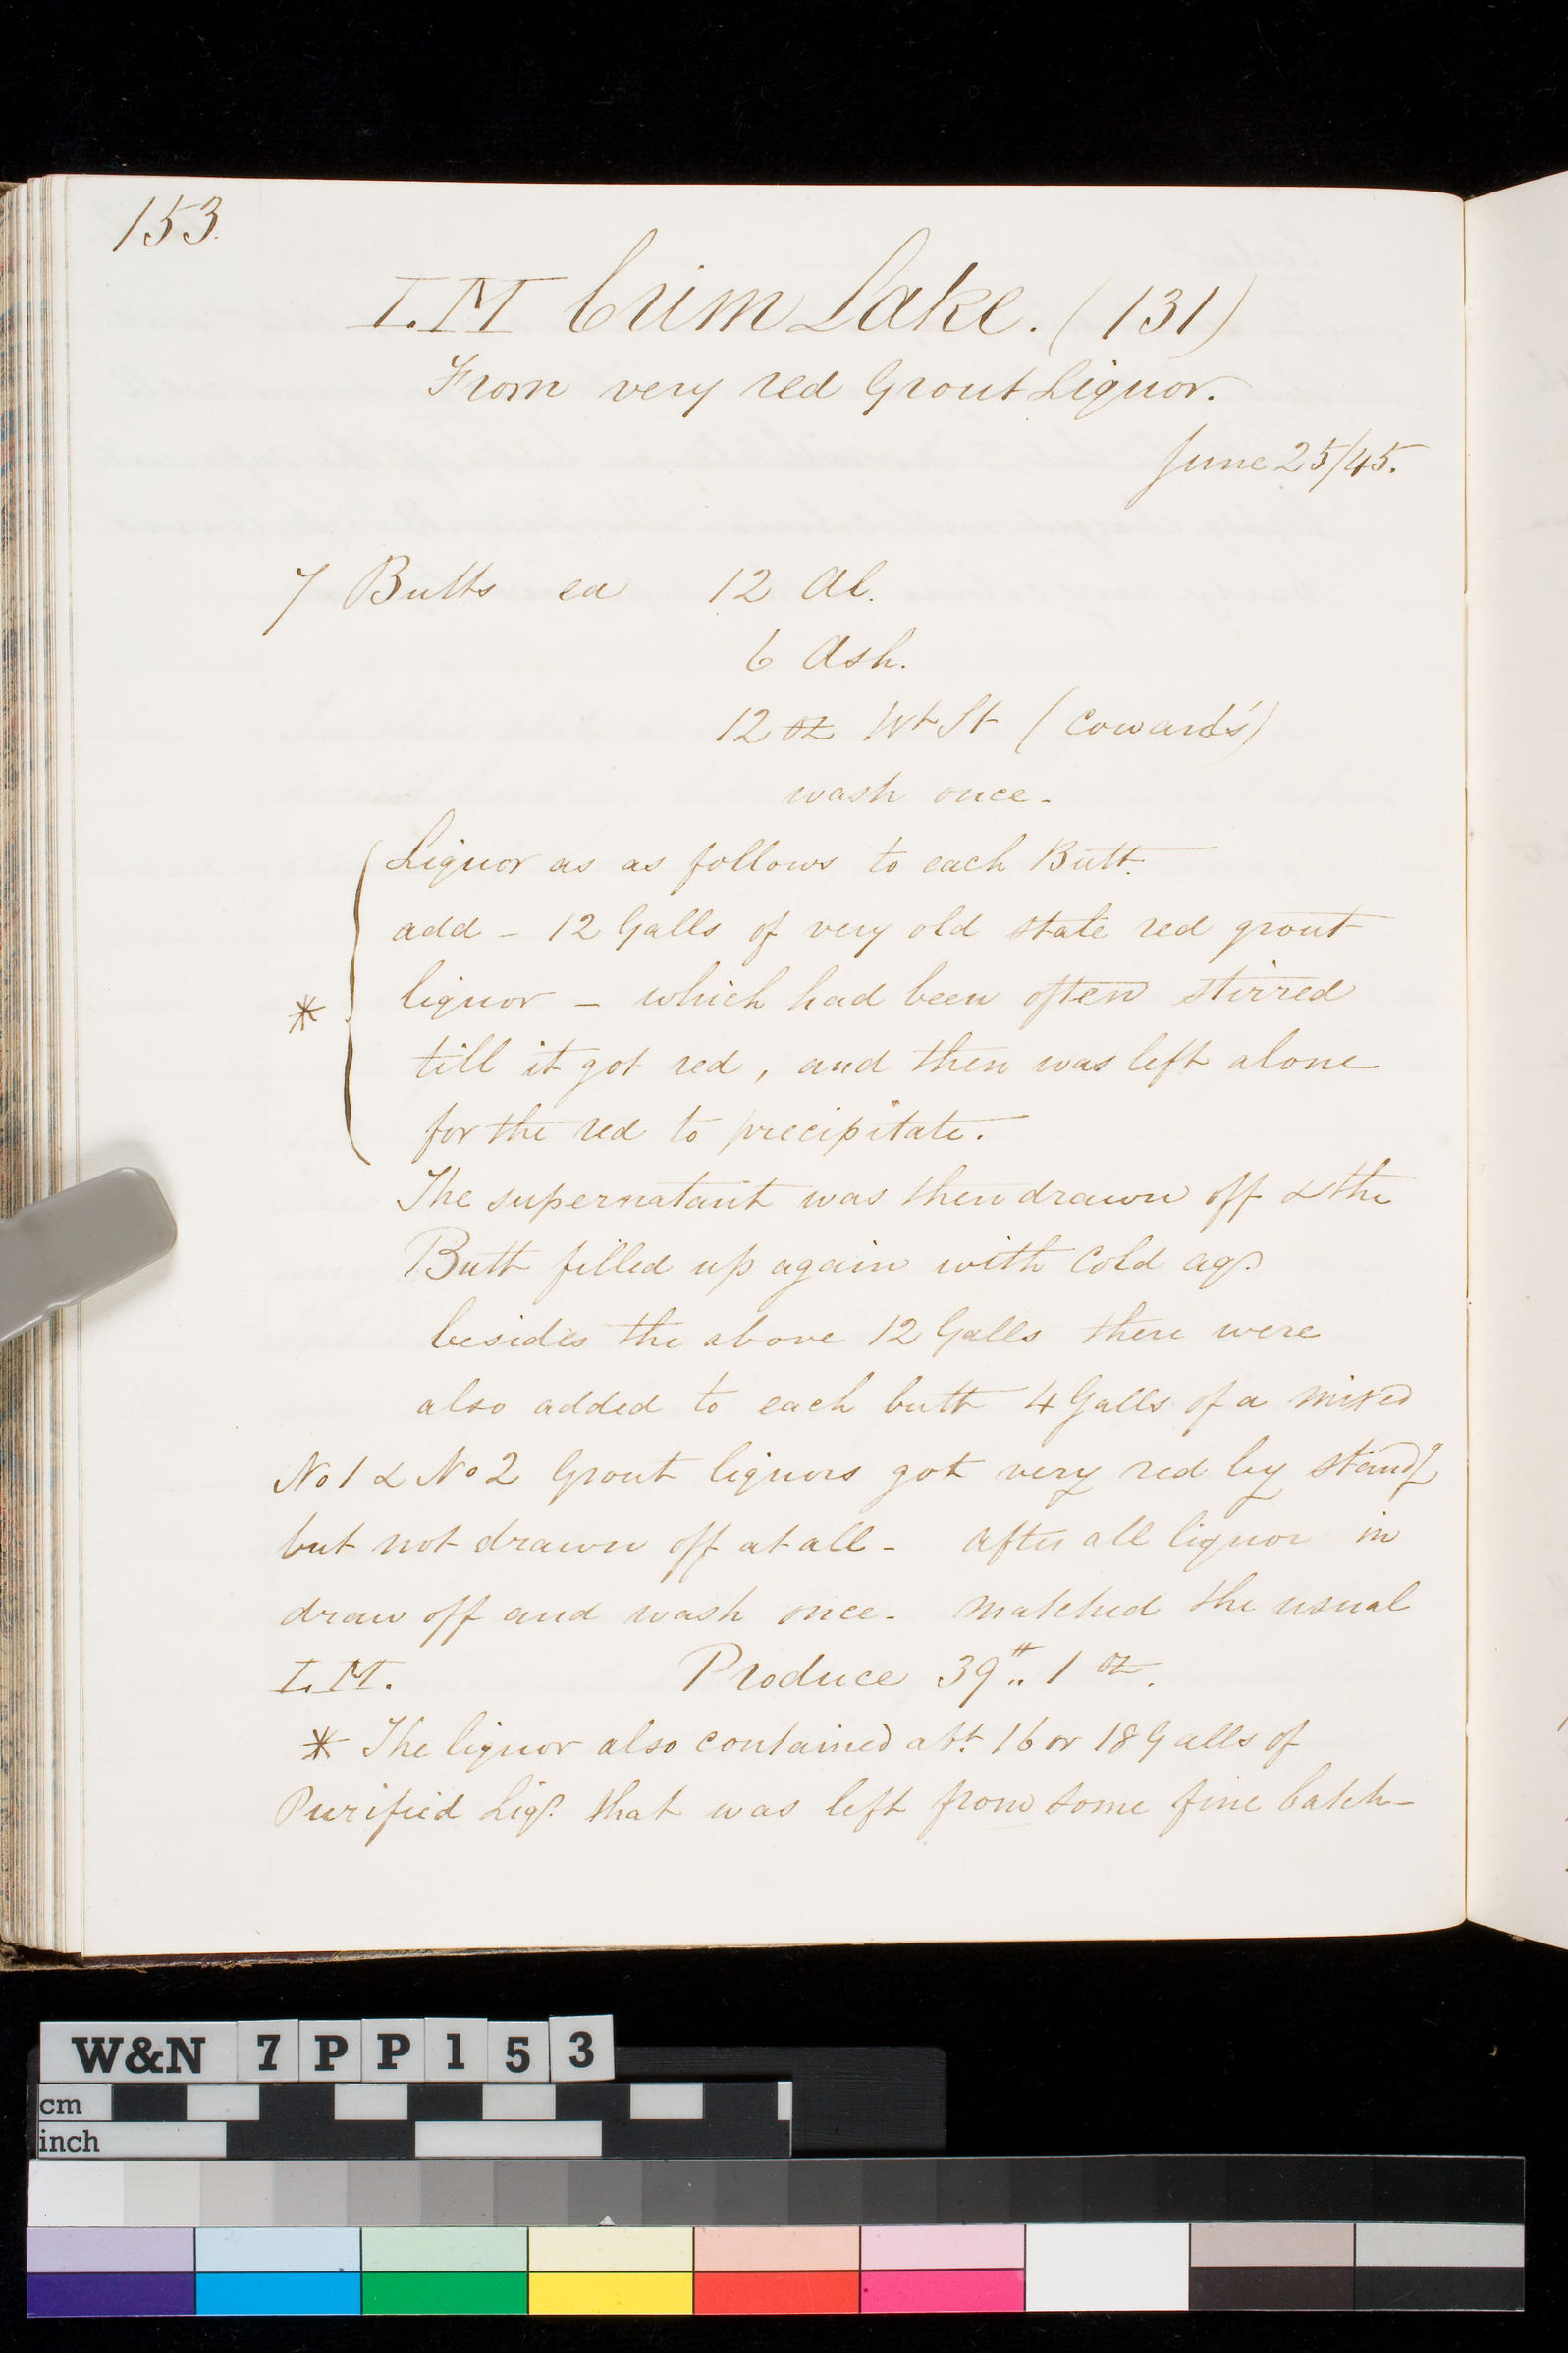 153.
I.M Crim Lake. (131)
From very red Grout Liquor.
June 25/45.
7 Butts ea 12 Al.
6 Ash.
12 oz Wt St (Coward's)
wash once -
Liquor as as follows to each Butt.
add - 12 Galls of very old stale red grout
liquor - which had been often stirred
till it got red, and then was left alone
for the red to precipitate.
The supernatant was then drawn off & the
Butt filled up again with cold aq.
besides the above 12 Galls there were
also added to each butt 4 Galls of a mixed
No 1 & No 2 Grout liquors got very red by standg
but not drawn off at all - after all liquor in
draw off and wash once - matched the usual
I.M. Produce 39 lb .. 1 oz.
* The liquor also contained abt. 16 or 18 Galls of
Purified Liqr. that was left from some fine batch -
*
W&N 7PP153
cm
inch